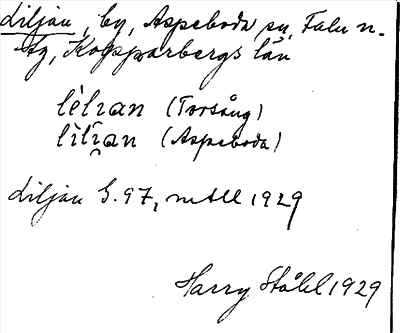 Liljan, by, Aspeboda sn, Falu n.
tg, Kopparbergs län
lèlɪan (Torsång)
lìlɪ̯an (Aspeboda)
Liljan G. 97, mtll 1929
Harry Ståhl 1929